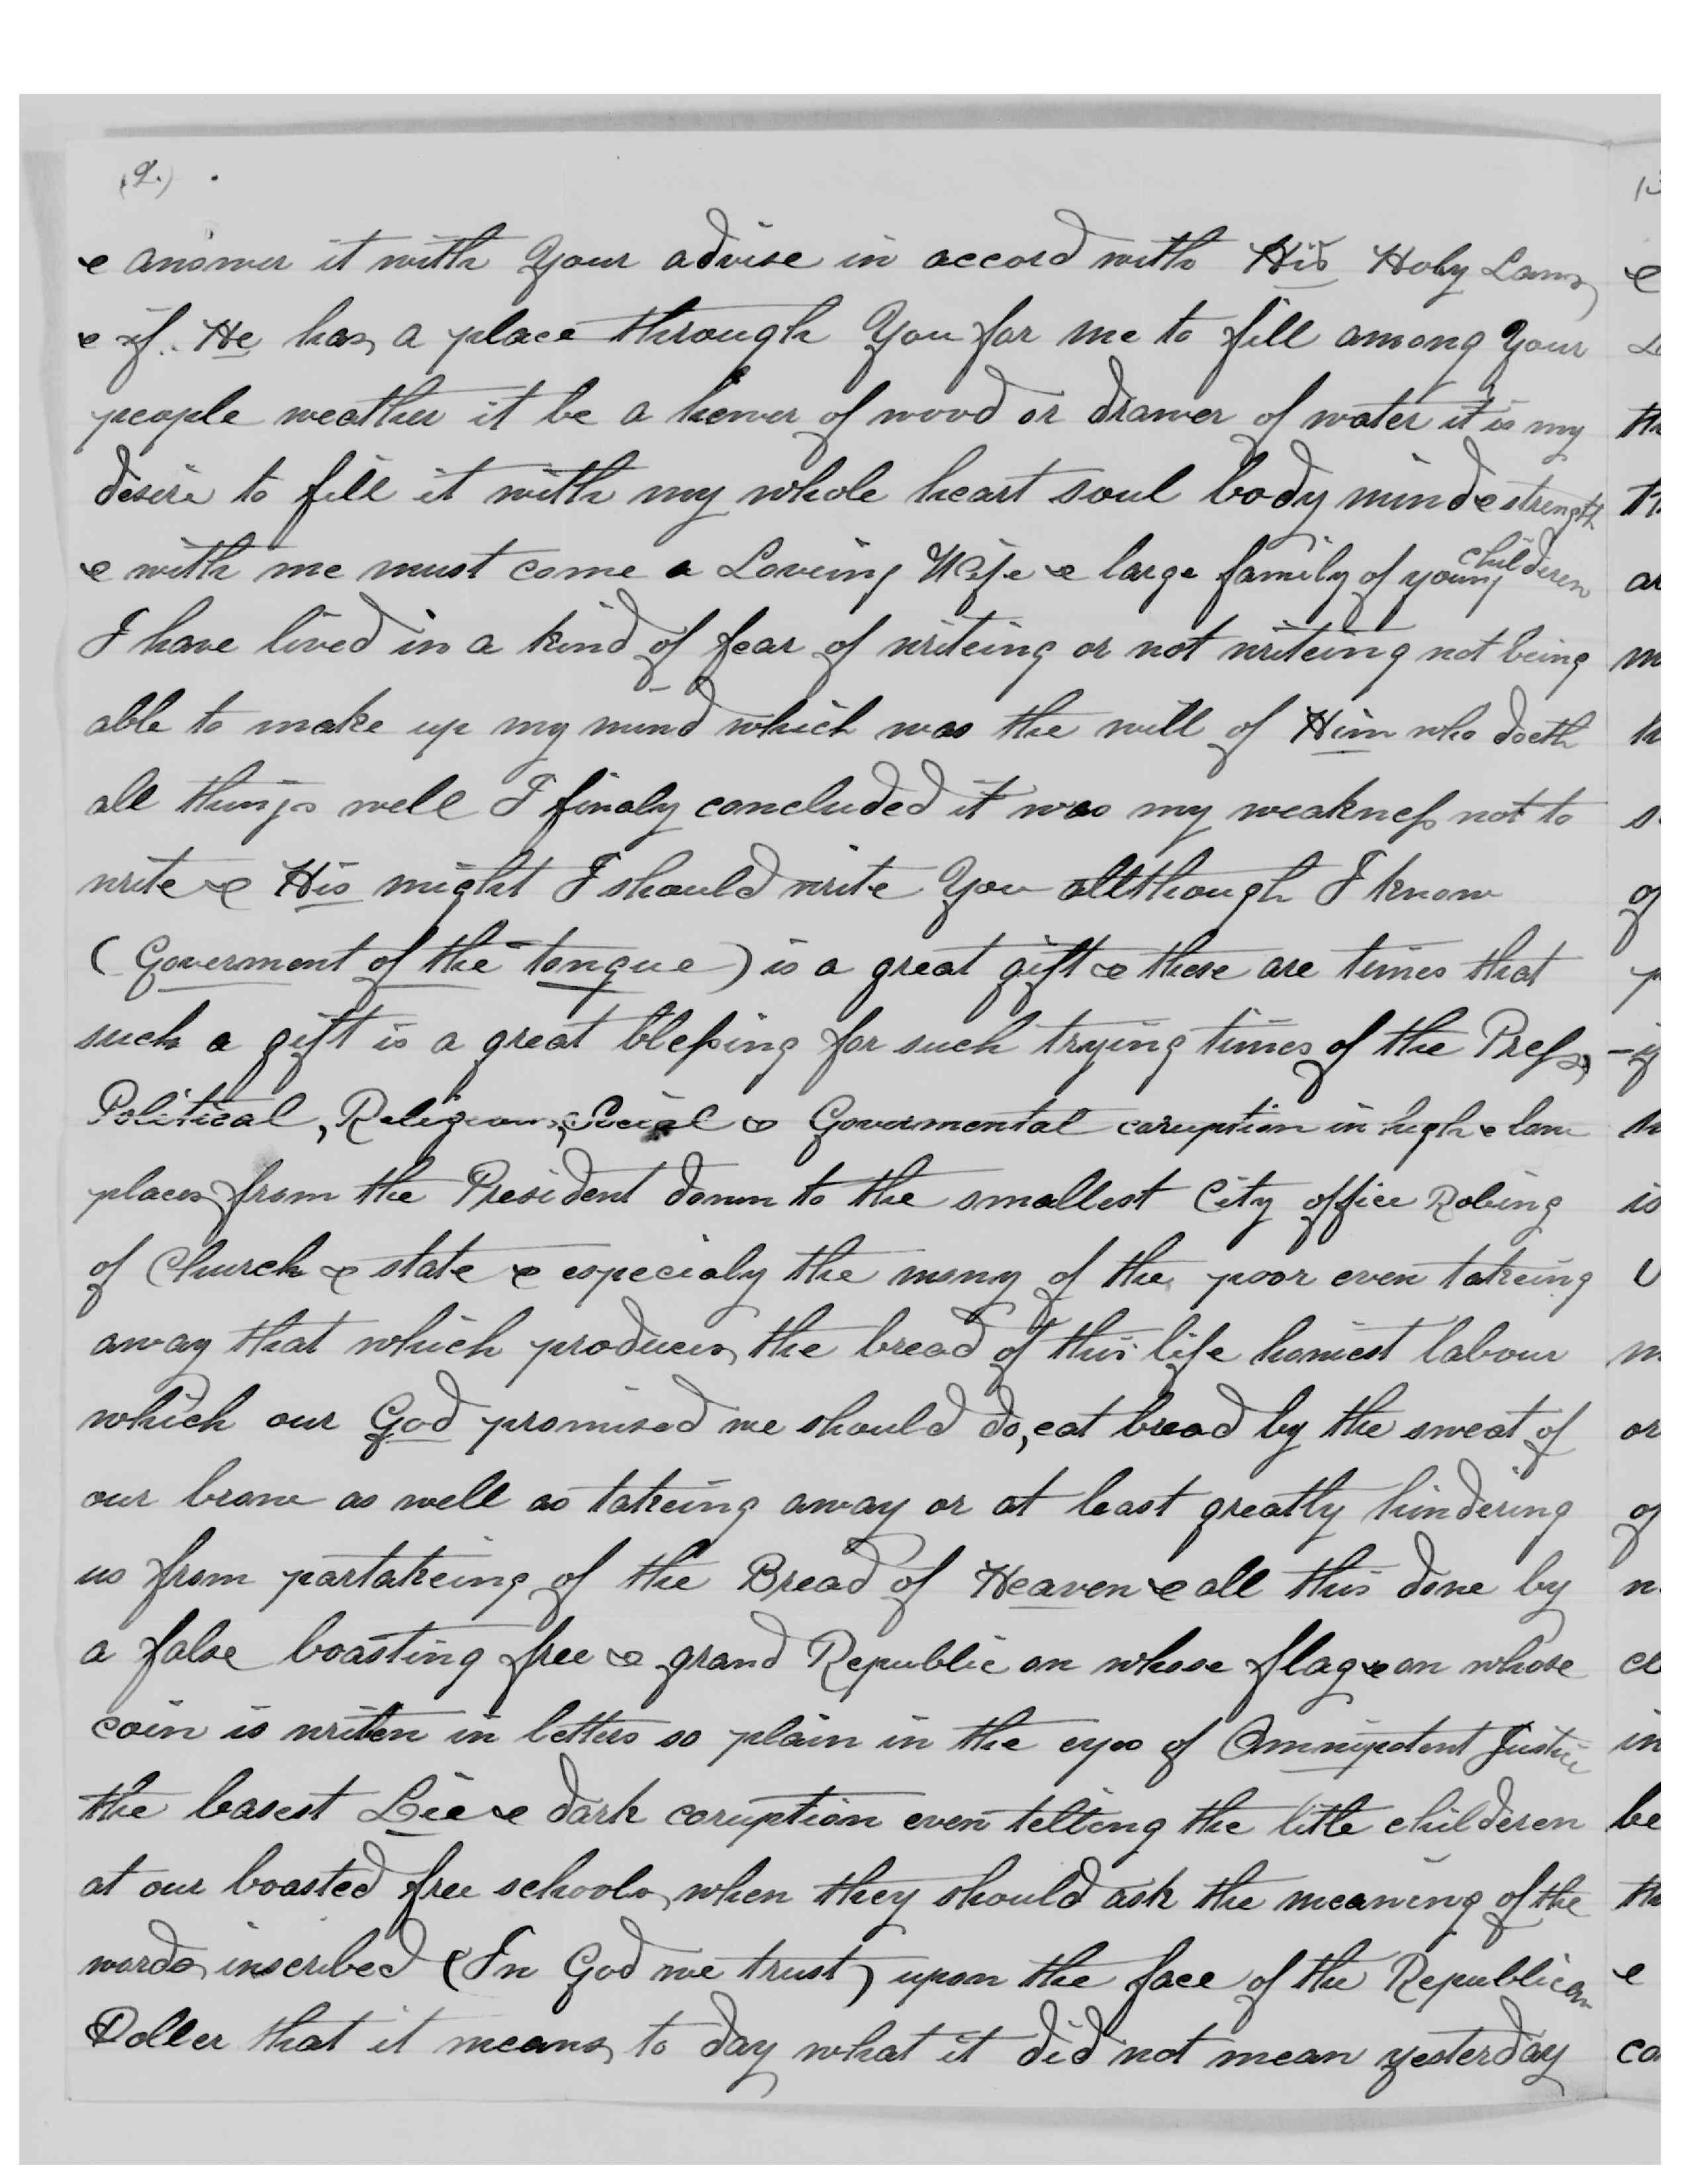 (2.)
& answer it with Your advise in accord with His Holy Laws
& if. He has a place through You for me to fill among Your
people weather it be a hewer of wood or drawer of water it is my
desire to fill it with my whole heart soul body mind & strength
& with me must come a Loveing Wife & large family of young childeren
I have lived in a kind of fear of writeing or not writeing not being
able to make up my mind which was the will of Him who doeth
all things well I finaly concluded it was my weakness not to
write & His might I should write You allthough I know
(Goverment of the tongue) is a great gift & these are times that
such a gift is a great blessing for such trying times of the Press,
Political, Religious, Social & Govermental coruption in high & low
places from the President down to the smallest City office Robing
of Church & state & especialy the many of the poor even takeing
away that which produces the bread of this life honest labour
which our God promised we should do, eat bread by the sweat of
our brow as well as takeing away or at least greatly hindering
us from partakeing of the Bread of Heaven & all this done by
a false boasting free & grand Republic on whose flag & on whose
coin is writen in letters so plain in the eyes of Omnipotent Justice
the basest Lie & dark coruption even telling the litle childeren
at our boasted free schools when they should ask the meaning of the
words inscribed (In God we trust) upon the face of the Republican
Doller that it means to day what it did not mean yesterday